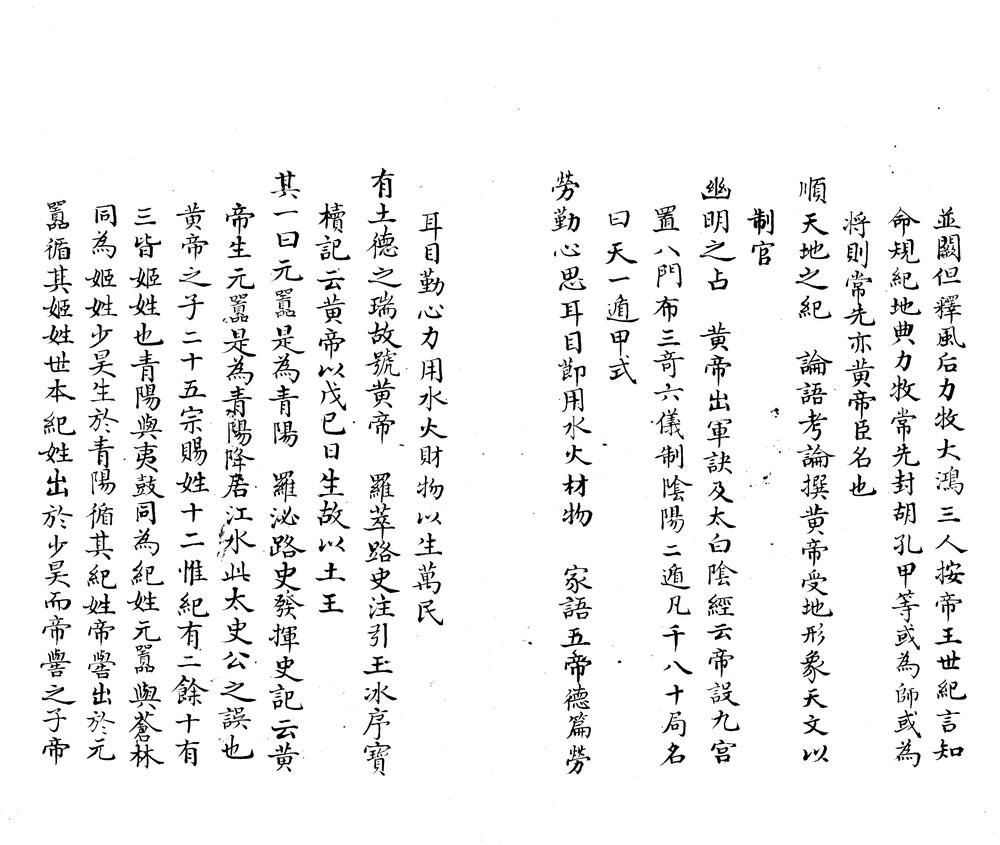 並闕但釋風后力牧大鴻三人按帝王世紀言知
命規紀地典力牧常先封胡孔甲等或為師或為
将則常先亦黄帝臣名也
順天地之紀　論語考論撰黄帝受地形象天文以
制官
幽明之占　黄帝出軍訣及太白陰經云帝設九宫
置八門布三竒六儀制陰陽二遁凡千八十局名
曰天一遁甲式
勞勤心思耳目節用水火材物　家語五帝德篇勞
耳目勤心力用水火財物以生萬民
有土德之瑞故號黄帝　羅苹路史注引玉冰序寶
櫝記云黄帝以戊巳日生故以土王
其一曰元囂是為青陽　羅泌路史發揮史記云黄
帝生元囂是為青陽降居江水此太史公之誤也
黄帝之子二十五宗賜姓十二惟紀有二餘十有
三皆姬姓也青陽與夷鼓同為紀姓元囂與蒼林
同為姬姓少昊生於青陽循其紀姓帝嚳出於元
囂循其姬姓世本紀姓出於少昊而帝嚳之子帝